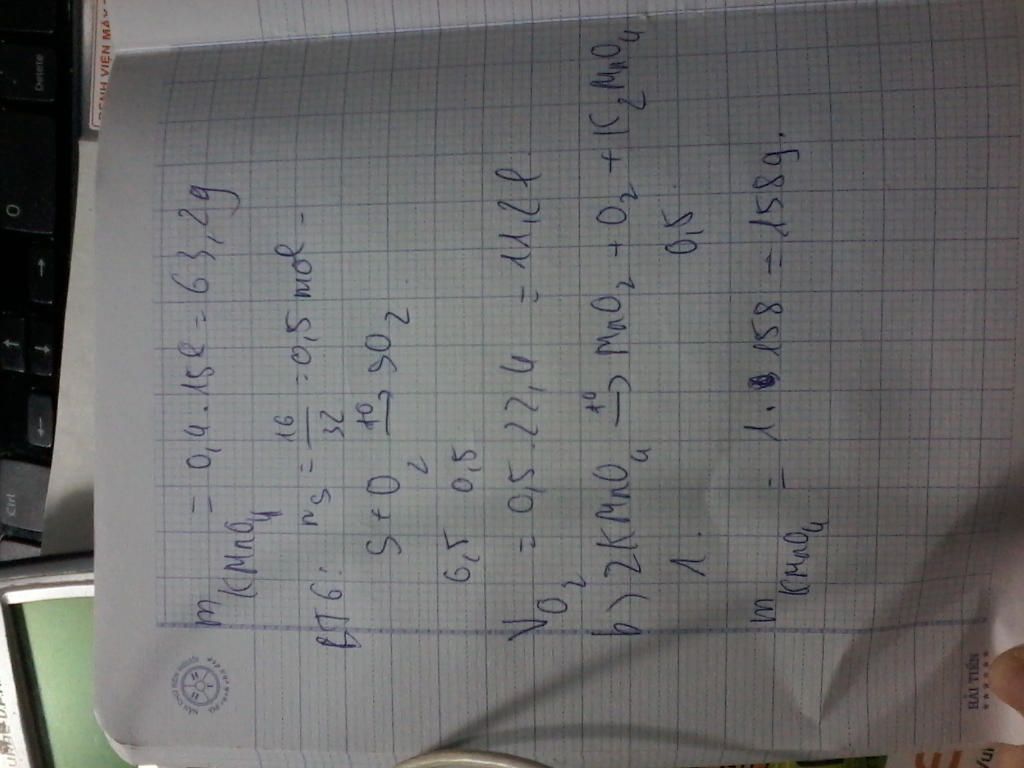 m KMnO4 = 0,4 . 158 = 63,2g
BT6: nS = 16/32 = 0,5 mol -
S + O2 t° → SO2
0,5 0,5
VO2 = 0,5 . 22,4 = 11,2l
b) 2KMnO4 t° → MnO2 + O2 + K2MnO4
1 . 0,5
m KMnO4 = 1 . 158 = 158g.
HẢI TIẾN
BỆNH VIỆN MẮT
Delete
O
Ctrl